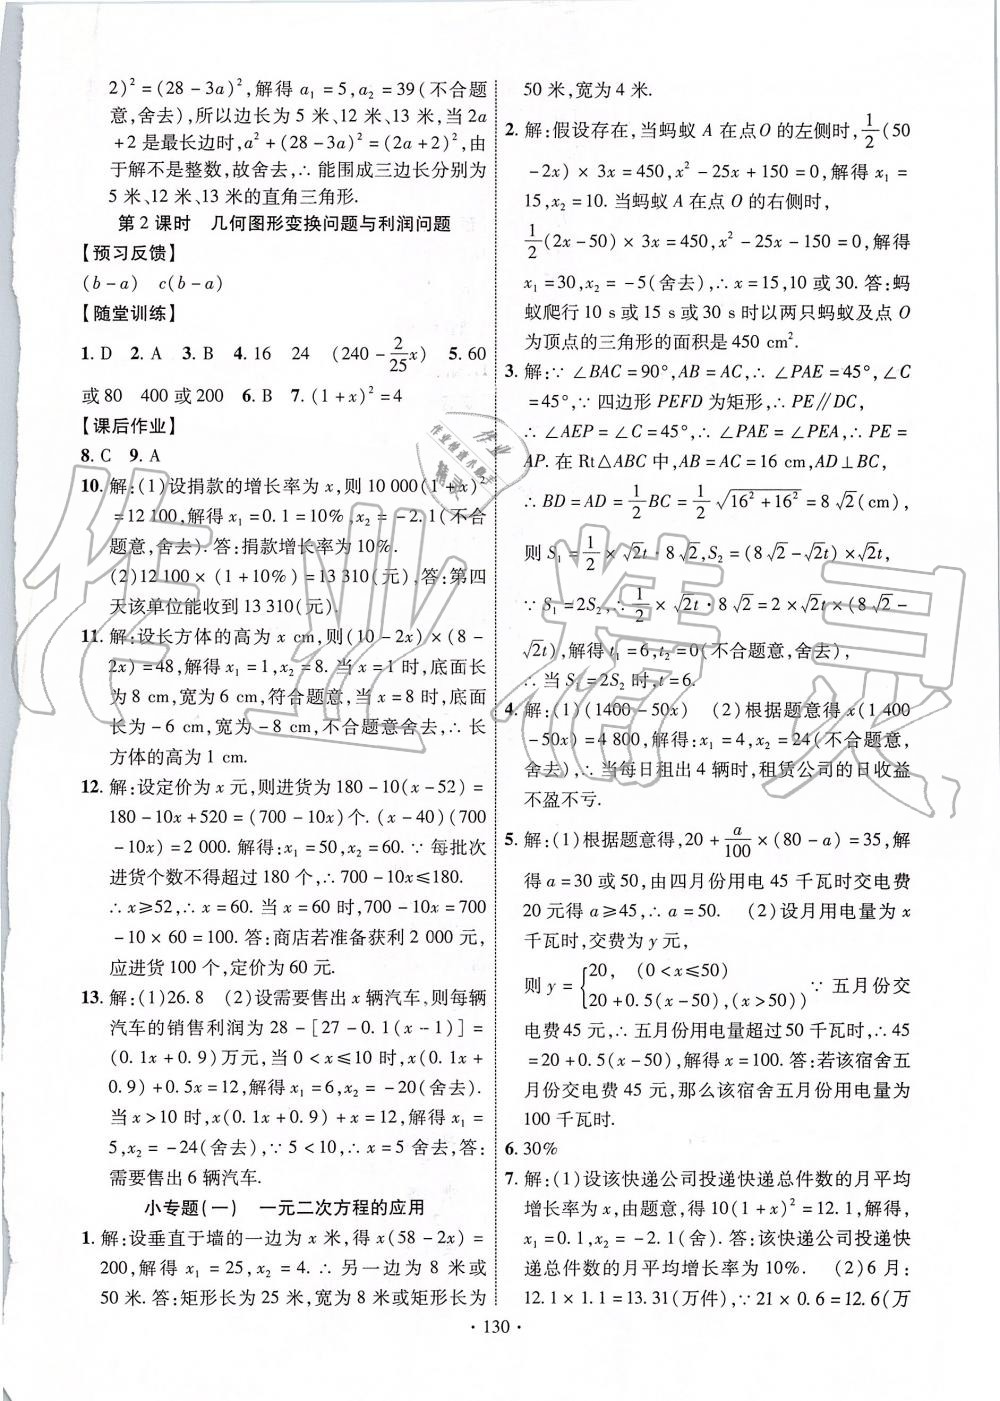 2)²=(28-3a)²,解得 a₁=5,a₂=39(不合题
意,舍去),所以边长为 5 米、12 米、13 米,当 2a
+2 是最长边时,a²+(28-3a)²=(2a+2)²,由
于解不是整数,故舍去,∴ 能围成三边长分别为
5 米、12 米、13 米的直角三角形.
第 2 课时 几何图形变换问题与利润问题
【预习反馈】
(b-a) c(b-a)
【随堂训练】
1. D 2. A 3. B 4. 16 24 (240-2/25x) 5. 60
或 80 400 或 200 6. B 7. (1+x)²=4
【课后作业】
8. C 9. A
10. 解:(1)设捐款的增长率为 x,则 10 000(1+x)²
=12 100,解得 x₁=0.1=10%,x₂=-2.1(不合
题意,舍去).答:捐款增长率为 10%.
(2)12 100×(1+10%)=13 310(元),答:第四
天该单位能收到 13 310(元).
11. 解:设长方体的高为 x cm,则(10-2x)×(8-
2x)=48,解得 x₁=1,x₂=8. 当 x=1 时,底面长
为 8 cm,宽为 6 cm,符合题意,当 x=8 时,底面
长为-6 cm,宽为-8 cm,不合题意舍去,∴ 长
方体的高为 1 cm.
12. 解:设定价为 x 元,则进货为 180-10(x-52)=
180-10x+520=(700-10x)个. (x-40)(700
-10x)=2 000. 解得:x₁=50,x₂=60. ∵ 每批次
进货个数不得超过 180 个,∴700-10x≤180.
∴x≥52,∴x=60. 当 x=60 时,700-10x=700
-10×60=100. 答:商店若准备获利 2 000 元,
应进货 100 个,定价为 60 元.
13. 解:(1)26.8 (2)设需要售出 x 辆汽车,则每辆
汽车的销售利润为 28-[27-0.1(x-1)]=
(0.1x+0.9)万元,当 0<x≤10 时,x(0.1x+
0.9)+0.5x=12,解得 x₁=6,x₂=-20(舍去).
当 x>10 时,x(0.1x+0.9)+x=12,解得 x₁=
5,x₂=-24(舍去),∵5<10,∴x=5 舍去,答:
需要售出 6 辆汽车.
小专题(一) 一元二次方程的应用
1. 解:设垂直于墙的一边为 x 米,得 x(58-2x)=
200,解得 x₁=25,x₂=4. ∴ 另一边为 8 米或
50 米. 答:矩形长为 25 米,宽为 8 米或矩形长为
50 米,宽为 4 米.
2. 解:假设存在,当蚂蚁 A 在点O 的左侧时,1/2(50
-2x)×3x=450,x²-25x+150=0,解得 x₁=
15,x₂=10. 当蚂蚁 A 在点 O 的右侧时,
1/2(2x-50)×3x=450,x²-25x-150=0,解得
x₁=30,x₂=-5(舍去),∴x=15,10 或 30. 答:蚂
蚁爬行 10 s 或 15 s 或 30 s 时以两只蚂蚁及点 O
为顶点的三角形的面积是 450 cm².
3. 解:∵∠BAC=90°,AB=AC,∴∠PAE=45°,∠C
=45°,∵ 四边形 PEFD 为矩形,∴PE∥DC,
∴∠AEP=∠C=45°,∴∠PAE=∠PEA,∴PE=
AP. 在 Rt△ABC 中,AB=AC=16 cm,AD⊥BC,
∴BD=AD=1/2BC=1/2√(16²+16²)=8√2(cm),
则 S₁=1/2×√2t·8√2,S₂=(8√2-√2t)×√2t,
∵S₁=2S₂,∴1/2×√2t·8√2=2×√2t×(8√2-
√2t),解得 t₁=6,t₂=0(不合题意,舍去),
∴ 当 S₁=2S₂ 时,t=6.
4. 解:(1)(1400-50x) (2)根据题意得 x(1 400
-50x)=4 800,解得:x₁=4,x₂=24(不合题意,
舍去),∴ 当每日租出 4 辆时,租赁公司的日收益
不盈不亏.
5. 解:(1)根据题意得,20+a/100×(80-a)=35,解
得 a=30 或 50,由四月份用电 45 千瓦时交电费
20 元得 a≥45,∴a=50. (2)设月用电量为 x
千瓦时,交费为 y 元,
则 y={20, (0<x≤50)
20+0.5(x-50),(x>50)) ∵ 五月份交
电费 45 元,∴ 五月份用电量超过 50 千瓦时,∴45
=20+0.5(x-50),解得 x=100. 答:若该宿舍五
月份交电费 45 元,那么该宿舍五月份用电量为
100 千瓦时.
6. 30%
7. 解:(1)设该快递公司投递快递总件数的月平均
增长率为 x,根据题意,得 10(1+x)²=12.1,解得,
x₁=0.1,x₂=-2.1(舍).答:该快递公司投递快
递总件数的月平均增长率为 10%. (2)6 月:
12.1×1.1=13.31(万件),∵21×0.6=12.6(万
· 130 ·
作业精灵